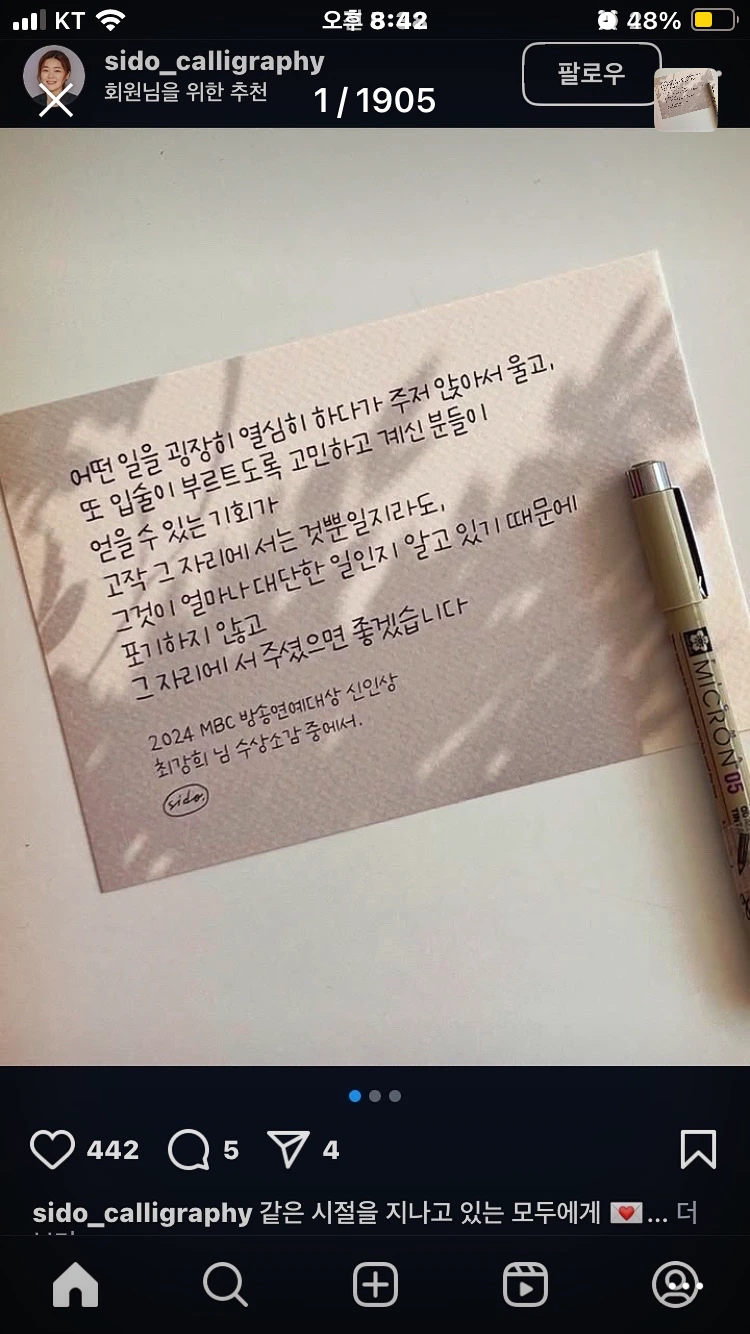 KT 오후 8:42 48%
sido_calligraphy
회원님을 위한 추천
팔로우
1 / 1905
어떤 일을 굉장히 열심히 하다가 주저 앉아서 울고,
또 입술이 부르트도록 고민하고 계신 분들이
얻을 수 있는 기회가
고작 그 자리에 서는 것뿐일지라도,
그것이 얼마나 대단한 일인지 알고 있기 때문에
포기하지 않고
그 자리에 서 주셨으면 좋겠습니다
2024 MBC 방송연예대상 신인상
최강희 님 수상소감 중에서.
sido.
MICRON 05
442 5 4
sido_calligraphy 같은 시절을 지나고 있는 모두에게 💌... 더